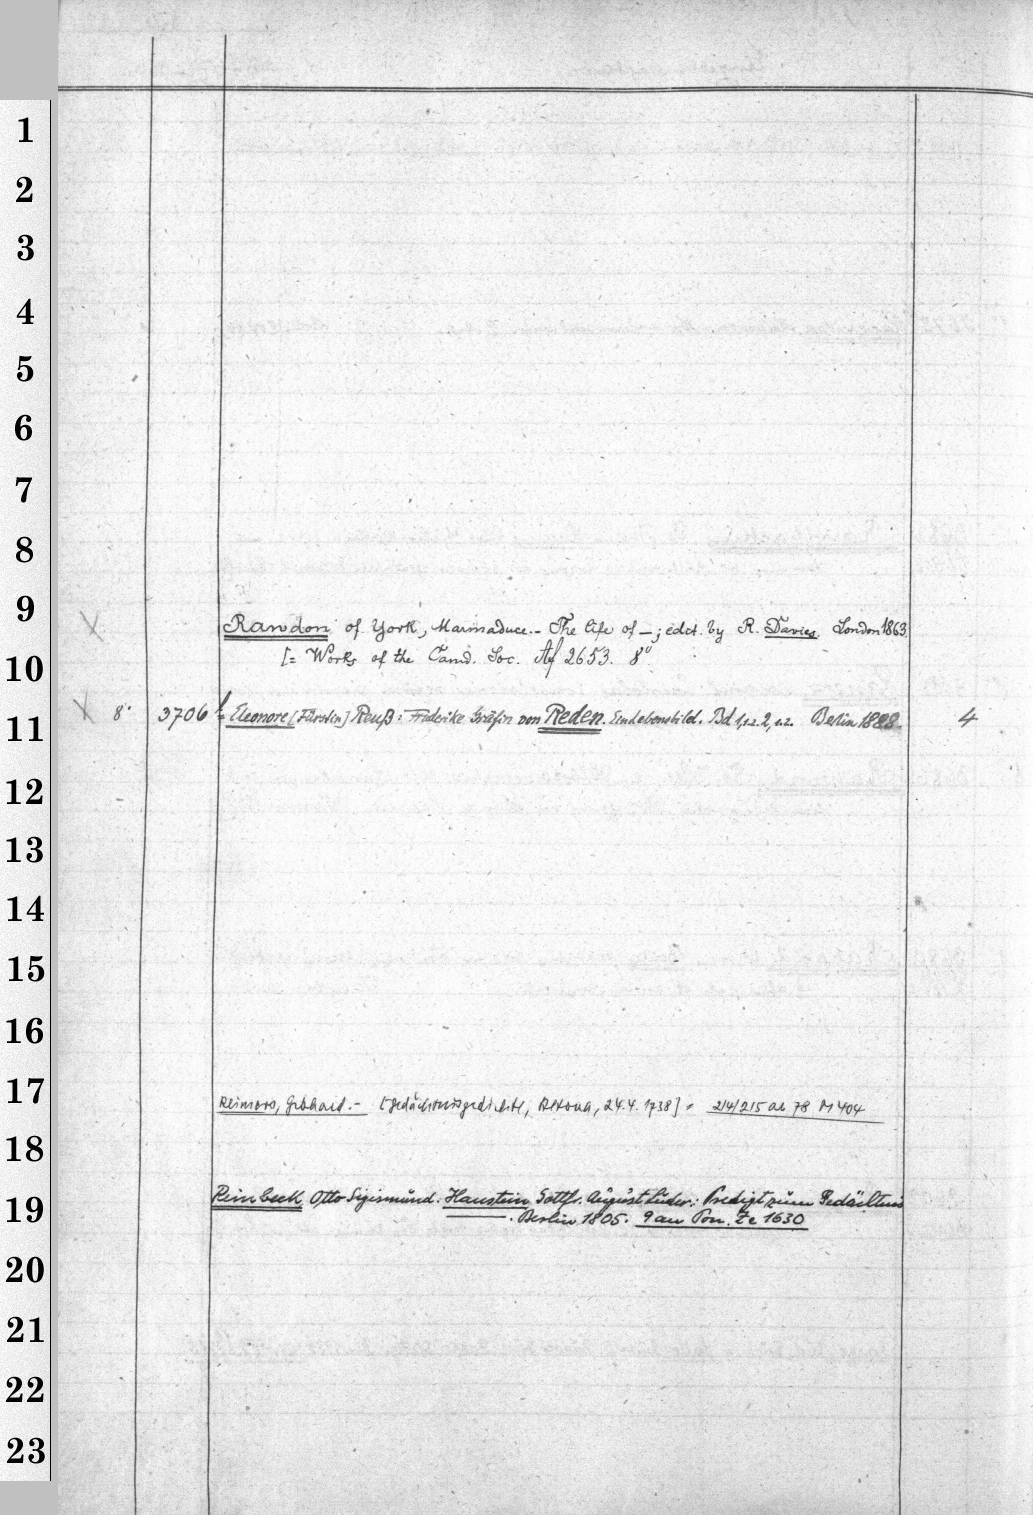 1
2
3
4
5
6
7
8
9
Rawdon of York, Marmaduce.- The life of _; edct. by R. Davies. London 1863.
10
[= Works of the Camd. Soc. Af 2653. 8°
11
8° 3706 Eleonore [Fürstin] Reuß: Friderike Gräfin von Reden. Ein Lebensbild. Bd 1, u. 2, Berlin 1888. 4
12
13
14
15
16
17
Reimers, Gebhard.- [Gedächtnisgedichte, Altona, 24.4.1738] = 214/215 an 78 M 404
18
19
Reinbeck Otto Sigismund. Hanstein Gottfr. August Luder.: Predigt zum Gedächtnis
. Berlin 1805. 9 an Ze 1630
20
21
22
23